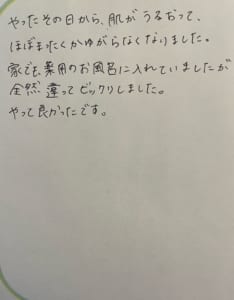 やったその日から、肌がうるおって、
ほぼまったくかゆがらなくなりました。
家でも、薬用のお風呂に入れていましたが
全然違ってビックリしました。
やって良かったです。